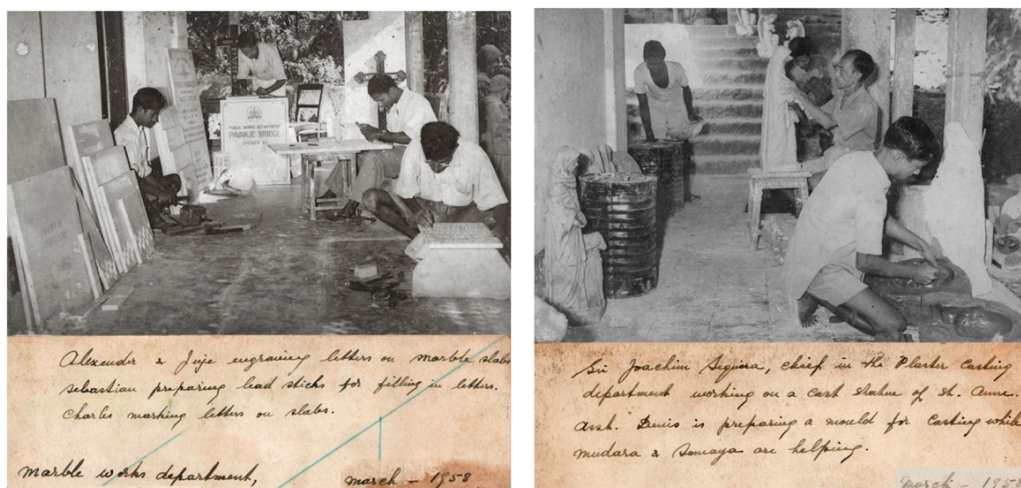 PUBLIC WORKS DEPARTMENT
PAVANJE BRIDGE
OPENED BY
Alexander & Juje engraving letters on marble slabs
Sebastian preparing lead sticks for filling in letters.
Charles marking letters on slabs.
Marble works department,
March - 1958
Sri Joachim Siquera, chief in the Plaster Casting
department working on a cast statue of St. Anne.
Asst. Denis is preparing a mould for Casting while
mudara & Somaya are helping.
March - 1958